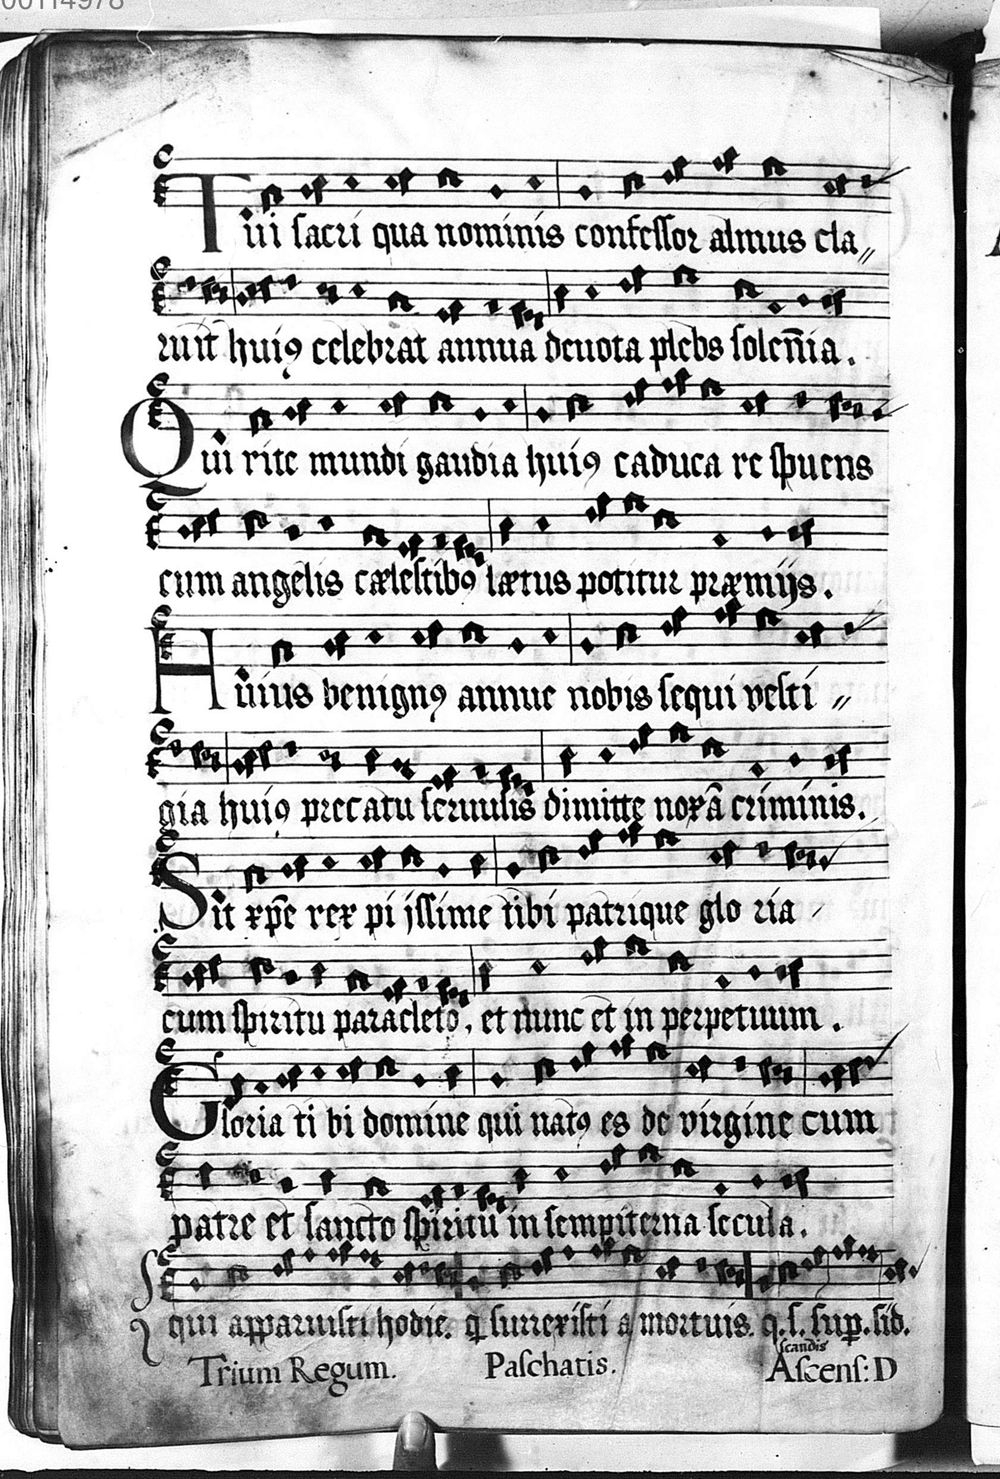 00114978
Tui sacri qua nominis confessor almus cla〃
ruit huiꝯ celebrat annua deuota plebs solen̄ia.
Qui rite mundi gaudia huiꝯ caduca re spuens
cum angelis cælestibꝯ lætus potitur præmijs.
Huius benignꝯ annue nobis sequi vesti〃
gia huiꝯ precatu seruulis dimitte noxā criminis.
Sit xp̄e rex pi issime tibi patrique glo ria
cum spiritu paracleto, et nunc et in perpetuum.
Gloria ti bi domine qui natꝯ es de virgine cum
patre et sancto spiritu in sempiterna secula.
qui apparuisti hodie. q̄ surrexisti a mortuis. q. s. sup. sid.
scandis
Trium Regum. Paschatis. Ascens: D